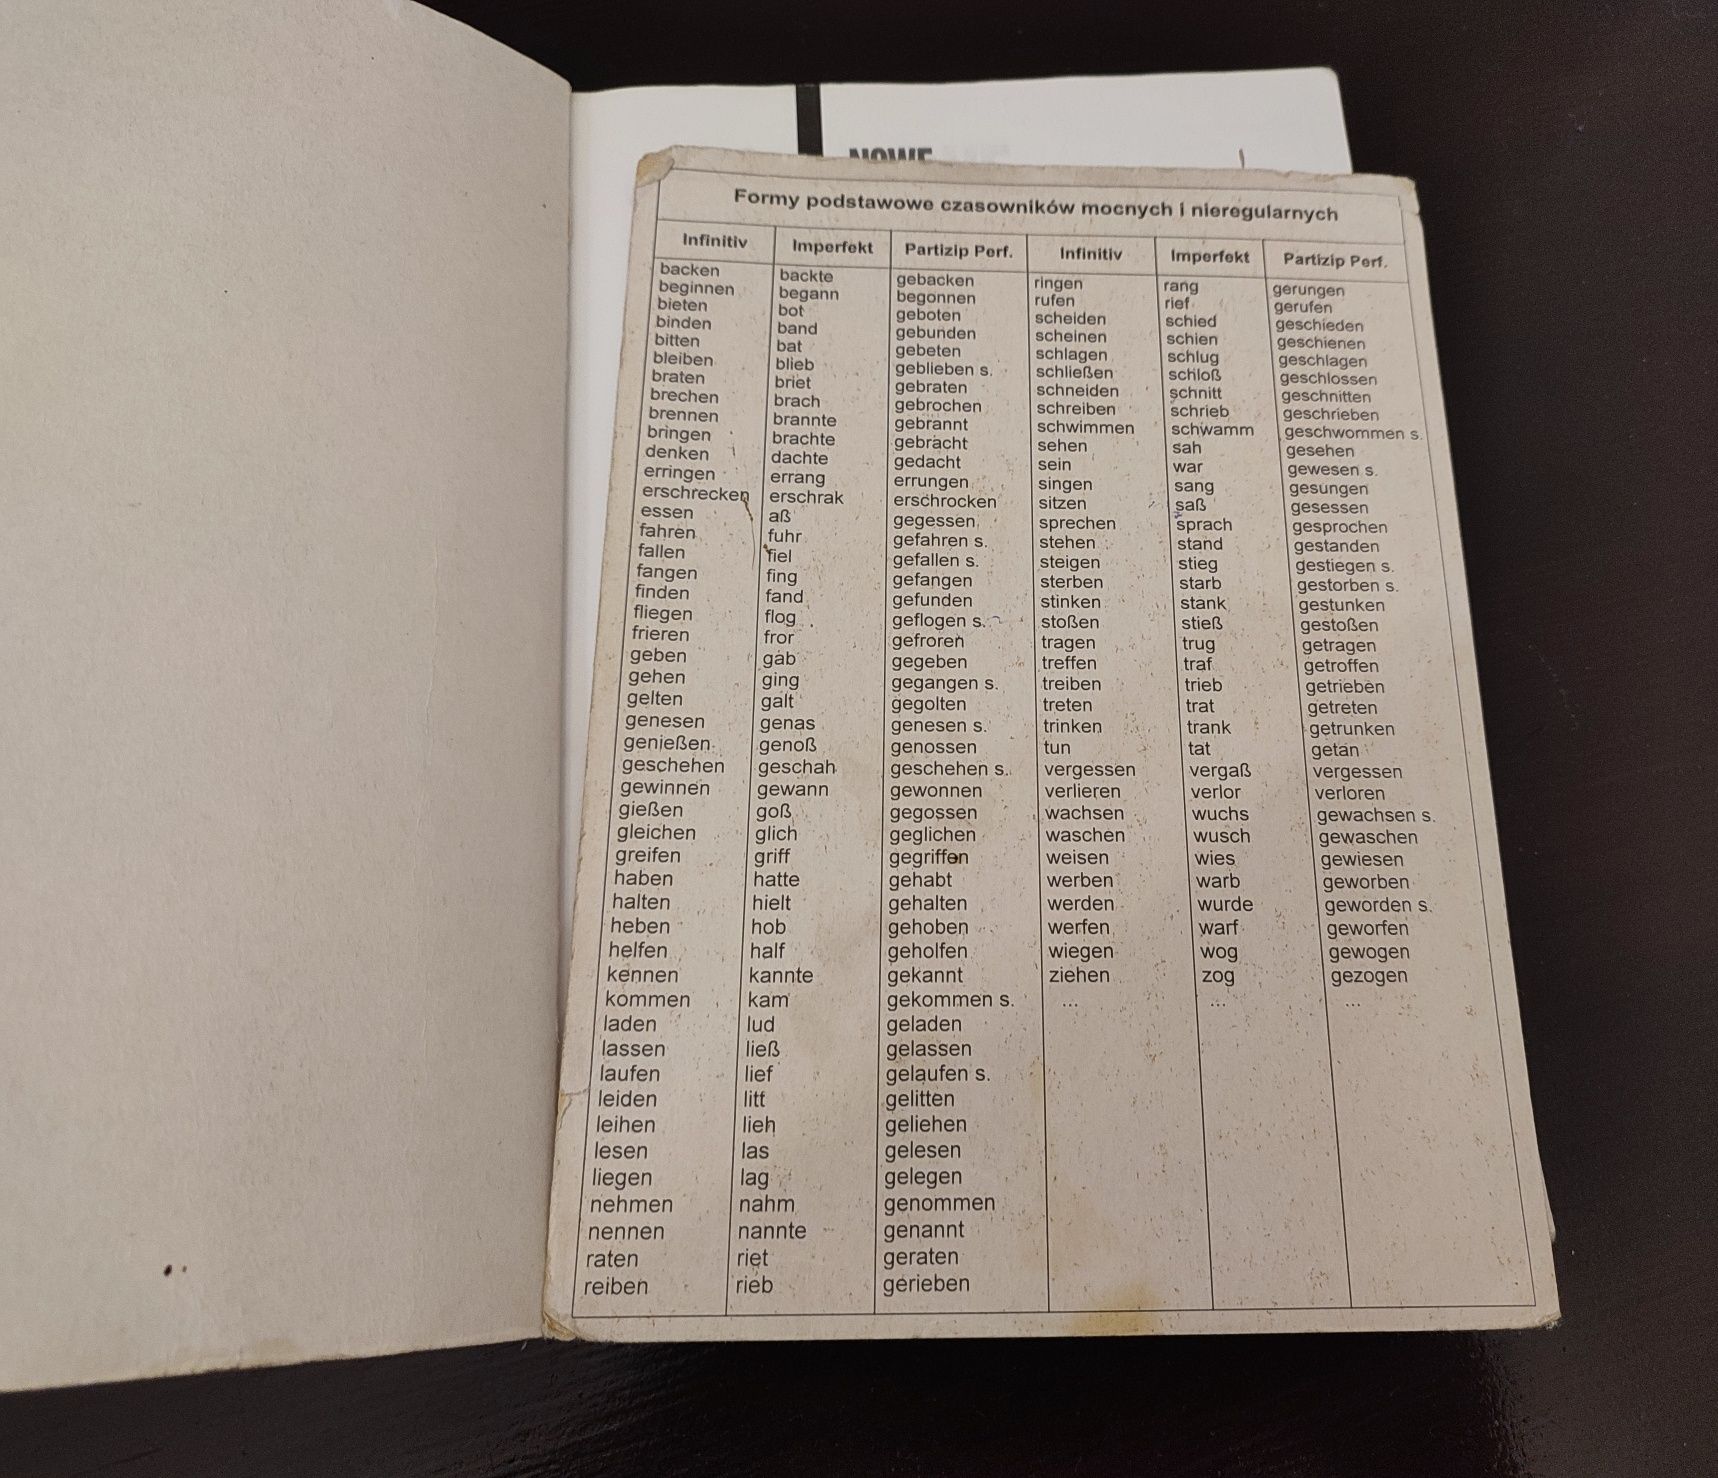 NOWE
Formy podstawowe czasowników mocnych i nieregularnych
Infinitiv Imperfekt Partizip Perf. Infinitiv Imperfekt Partizip Perf.
backen backte gebacken ringen rang gerungen
beginnen begann begonnen rufen rief gerufen
bieten bot geboten scheiden schied geschieden
binden band gebunden scheinen schien geschienen
bitten bat gebeten schlagen schlug geschlagen
bleiben blieb geblieben s. schließen schloß geschlossen
braten briet gebraten schneiden schnitt geschnitten
brechen brach gebrochen schreiben schrieb geschrieben
brennen brannte gebrannt schwimmen schwamm geschwommen s.
bringen brachte gebracht sehen sah gesehen
denken dachte gedacht sein war gewesen s.
erringen errang errungen singen sang gesungen
erschrecken erschrak erschrocken sitzen saß gesessen
essen aß gegessen sprechen sprach gesprochen
fahren fuhr gefahren s. stehen stand gestanden
fallen fiel gefallen s. steigen stieg gestiegen s.
fangen fing gefangen sterben starb gestorben s.
finden fand gefunden stinken stank gestunken
fliegen flog geflogen s. stoßen stieß gestoßen
frieren fror gefroren tragen trug getragen
geben gab gegeben treffen traf getroffen
gehen ging gegangen s. treiben trieb getrieben
gelten galt gegolten treten trat getreten
genesen genas genesen s. trinken trank getrunken
genießen genoß genossen tun tat getan
geschehen geschah geschehen s. vergessen vergaß vergessen
gewinnen gewann gewonnen verlieren verlor verloren
gießen goß gegossen wachsen wuchs gewachsen s.
gleichen glich geglichen waschen wusch gewaschen
greifen griff gegriffen weisen wies gewiesen
haben hatte gehabt werben warb geworben
halten hielt gehalten werden wurde geworden s.
heben hob gehoben werfen warf geworfen
helfen half geholfen wiegen wog gewogen
kennen kannte gekannt ziehen zog gezogen
kommen kam gekommen s. ... ... ...
laden lud geladen
lassen ließ gelassen
laufen lief gelaufen s.
leiden litt gelitten
leihen lieh geliehen
lesen las gelesen
liegen lag gelegen
nehmen nahm genommen
nennen nannte genannt
raten riet geraten
reiben rieb gerieben